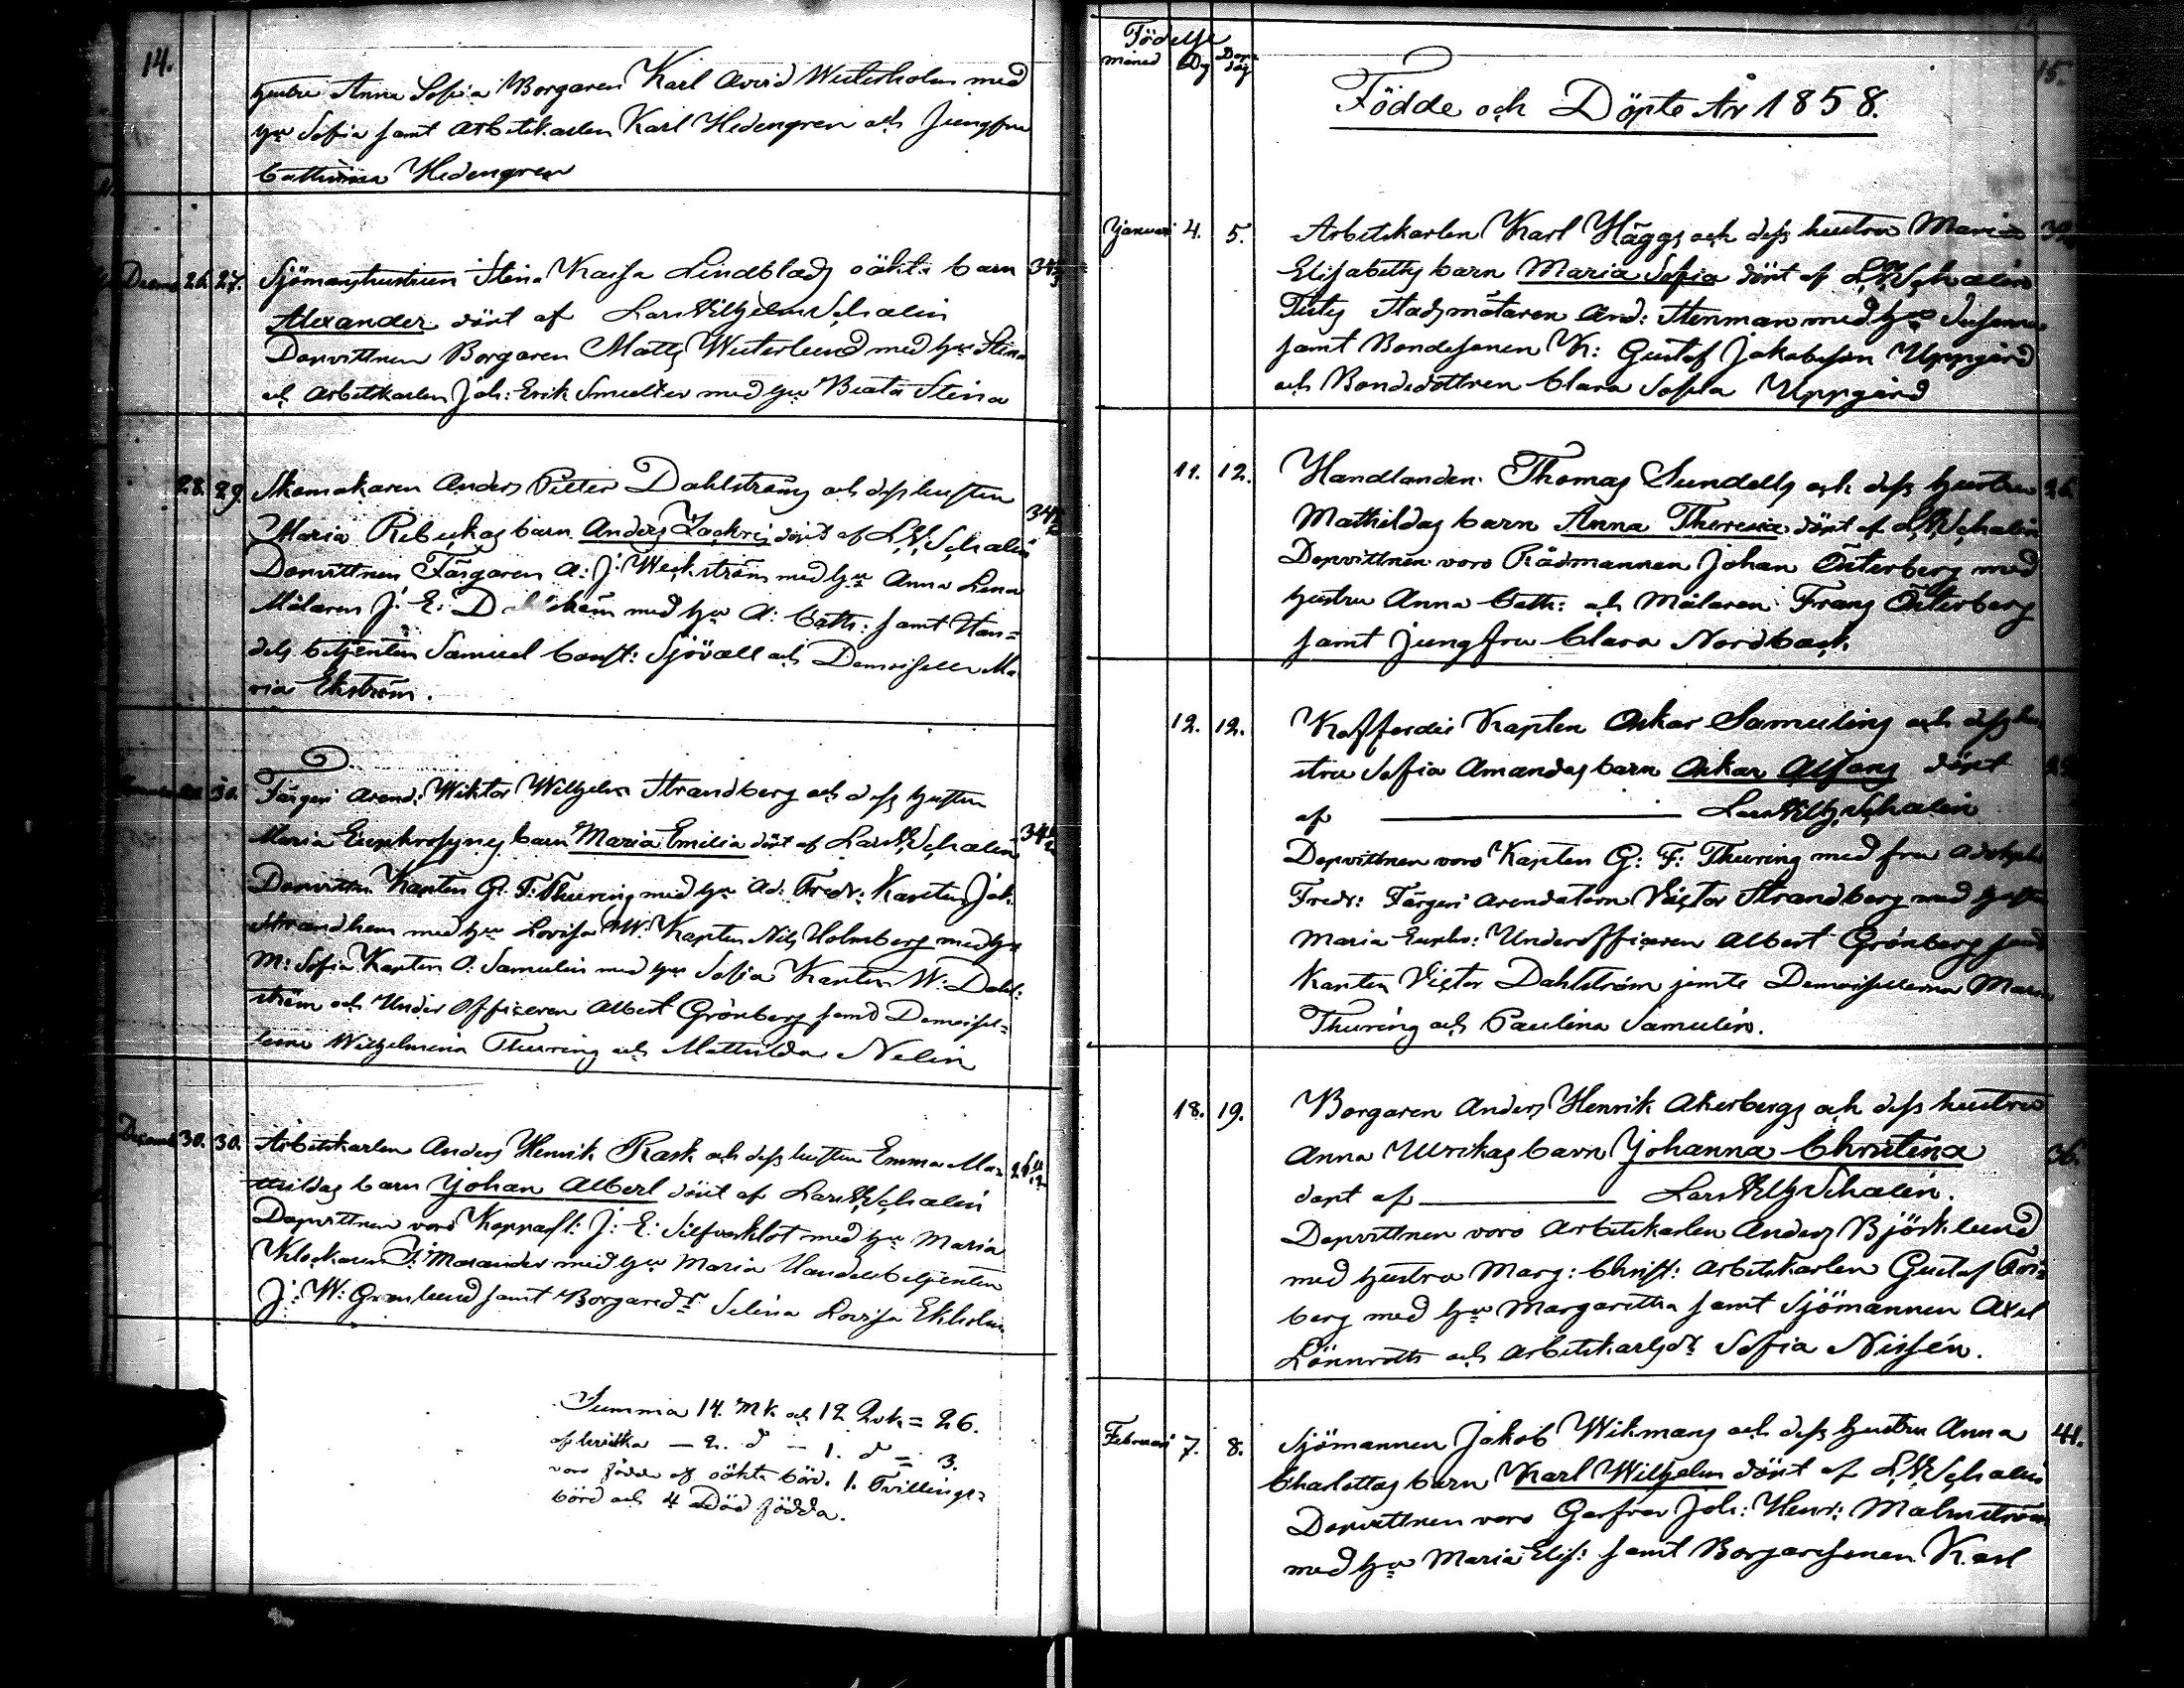 14.
hustru Anna Sofia Borgaren Karl Arvid Westerholm med
hu Sofia samt Arbetskarlen Karl Hedengren och Jungfru
Catharina Hedengren
Decemb 26. 27. Sjömanshustrun Stina Kaisa Lindblads oäkta barn
Alexander döpt af Lars Wilhelm Schalin
Dopvittnen Borgaren Matts Westerlund med hu Stina
och Arbetskarlen Joh: Erik Smulter med hu Beata Stina
28. 29. Skomakaren Anders Petter Dahlströms och dess hustru
Maria Rebeckas barn Anders Zachris döpt af L.W. Schalin
Dopvittnen Färgaren A: J: Weckström med hu Anna Lena
Målaren J: E: Dahlström med hu A: Cath: samt Han=
dels betjenten Samuel Const: Sjövall och Demoiselle Ma
ria Ekström.
30. Färgeri Arend: Wiktor Wilhelm Strandberg och dess hustru
Maria Euphrosynes barn Maria Emilia döpt af Lars W. Schalin
Dopvittn: Kapten G. F. Thuring med hu Ad: Fredr: Kapten Joh.
Strandhem med hu Lovisa W: Kapten Nils Holmberg med hu
M: Sofia Kapten O: Samulin med hu Sofia Kapten W: Dahl:
ström och Under Officeren Albert Grönberg samt Demoisel=
lerne Wilhelmina Thuring och Mathilda Nelin
Decemb 30. 30. Arbetskarlen Anders Henrik Rask och dess hustru Emma Ma=
thildas barn Johan Albert döpt af Lars W. Schalin
Dopvittnen voro Koppasl: J: E: Silfverklot med hu Maria
Klockaren F: Marander med hu Maria Handelsbetjenten
J: W: Grönlund samt Borgaredr Selina Lovisa Ekholm
Summa 14. Mk och 12 Qvk = 26.
af hvilka — 2. d — 1. d = 3.
voro födde af oäkta börd. 1. Tvillings=
börd och 4 Död födda.
15.
Födelse
månad Dag Dop dag
Födde och Döpte År 1858.
Januari 4. 5. Arbetskarlen Karl Häggs och dess hustru Maria
Elisabeths barn Maria Sofia döpt af L.W. Schalin
Testes Stadsmätaren And: Stenman med hu Susanna
samt Bondesonen K: Gustaf Jakobsson Uppgård
och Bondedottren Clara Sofia Uppgård
11. 12. Handlanden Thomas Sundells och dess hustru 26.
Mathildas barn Anna Theresia döpt af L.W. Schalin
Dopvittnen voro Rådmannen Johan Österberg med
hustru Anna Cath: och Målaren Frans Österberg
samt Jungfru Clara Nordback.
12. 12. Kofferdie Kapten Oskar Samulins och dess hu
stru Sofia Amandas barn Oskar Alfons döpt
af — Lars Wilh. Schalin
Dopvittnen voro Kapten G: F: Thuring med fru Adolph
Fredr: Färgeri Arendatorn Victor Strandberg med hustru
Maria Euphr: Underofficeren Albert Grönberg samt
Kapten Victor Dahlström jemte Demoisellerna Maria
Thuring och Paulina Samulin.
18. 19. Borgaren Anders Henrik Åkerbergs och dess hustru
Anna Ulrikas barn Johanna Christina 36.
döpt af — Lars Wilh Schalin.
Dopvittnen voro Arbetskarlen Anders Björklund
med hustru Marg: Christ: Arbetskarlen Gustaf Fri=
berg med hu Margaretha samt Sjömannen Axel
Lönnroth och Arbetskarlsdr Sofia Nissén.
Februari 7. 8. Sjömannen Jakob Wikmans och dess hustru Anna 41.
Charlottas barn Karl Wilhelm döpt af L.W. Schalin
Dopvittnen voro Garfvar Joh: Henr: Malmström
med hu Maria Elis: samt Borgaresonen Karl